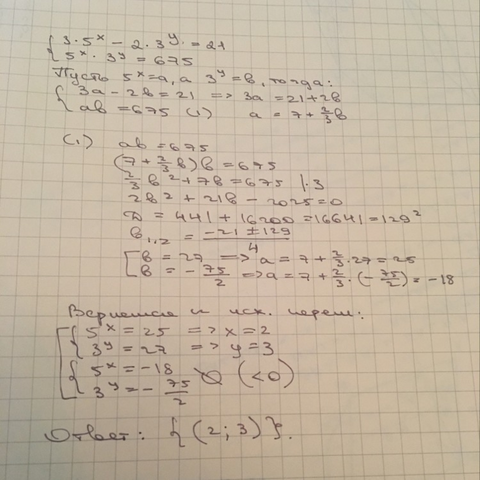 {3·5ˣ − 2·3ʸ = 21
5ˣ·3ʸ = 675
Пусть 5ˣ=a, а 3ʸ=b, тогда:
{3a − 2b = 21 => 3a = 21+2b
ab = 675 (1) a = 7 + 2/3b
(1) ab = 675
(7 + 2/3b)b = 675
2/3b² + 7b = 675 |·3
2b² + 21b − 2025 = 0
D = 441 + 16200 = 16641 = 129²
b₁,₂ = (−21 ± 129)/4
[b = 27 => a = 7 + 2/3·27 = 25
b = −75/2 => a = 7 + 2/3·(−75/2) = −18
Вернемся к исх. перем.:
[{5ˣ = 25 => x = 2
3ʸ = 27 => y = 3
{5ˣ = −18 ∅ (<0)
3ʸ = −75/2
Ответ: {(2; 3)}.